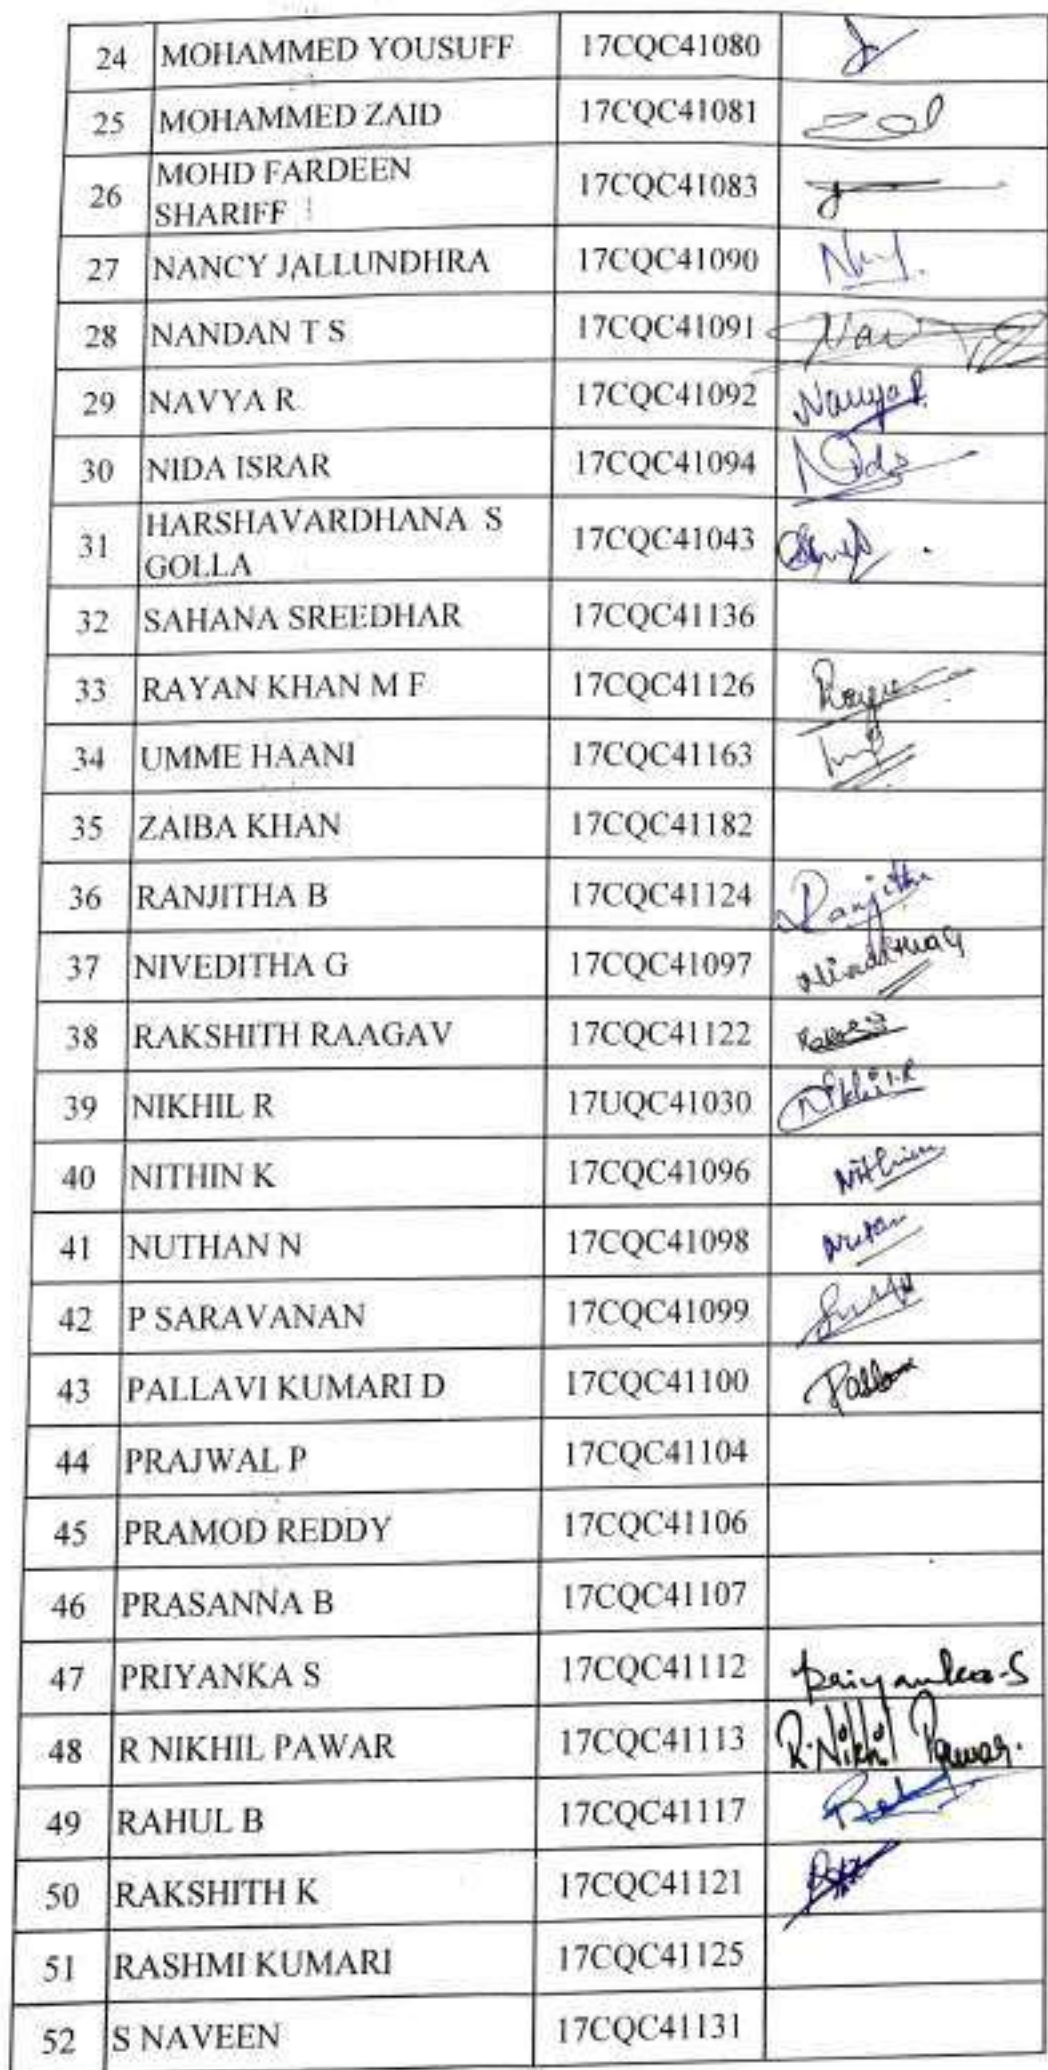 24 MOHAMMED YOUSUFF 17CQC41080
25 MOHAMMED ZAID 17CQC41081
26 MOHD FARDEEN
SHARIFF 17CQC41083
27 NANCY JALLUNDHRA 17CQC41090
28 NANDAN T S 17CQC41091
29 NAVYA R 17CQC41092 Navya R.
30 NIDA ISRAR 17CQC41094 Nida
31 HARSHAVARDHANA S
GOLLA 17CQC41043
32 SAHANA SREEDHAR 17CQC41136
33 RAYAN KHAN M F 17CQC41126
34 UMME HAANI 17CQC41163
35 ZAIBA KHAN 17CQC41182
36 RANJITHA B 17CQC41124 Ranjitha
37 NIVEDITHA G 17CQC41097
38 RAKSHITH RAAGAV 17CQC41122
39 NIKHIL R 17UQC41030 Nikhil.R
40 NITHIN K 17CQC41096
41 NUTHAN N 17CQC41098
42 P SARAVANAN 17CQC41099
43 PALLAVI KUMARI D 17CQC41100
44 PRAJWAL P 17CQC41104
45 PRAMOD REDDY 17CQC41106
46 PRASANNA B 17CQC41107
47 PRIYANKA S 17CQC41112 Priyanka-S
48 R NIKHIL PAWAR 17CQC41113 R.Nikhil Pawar.
49 RAHUL B 17CQC41117
50 RAKSHITH K 17CQC41121
51 RASHMI KUMARI 17CQC41125
52 S NAVEEN 17CQC41131